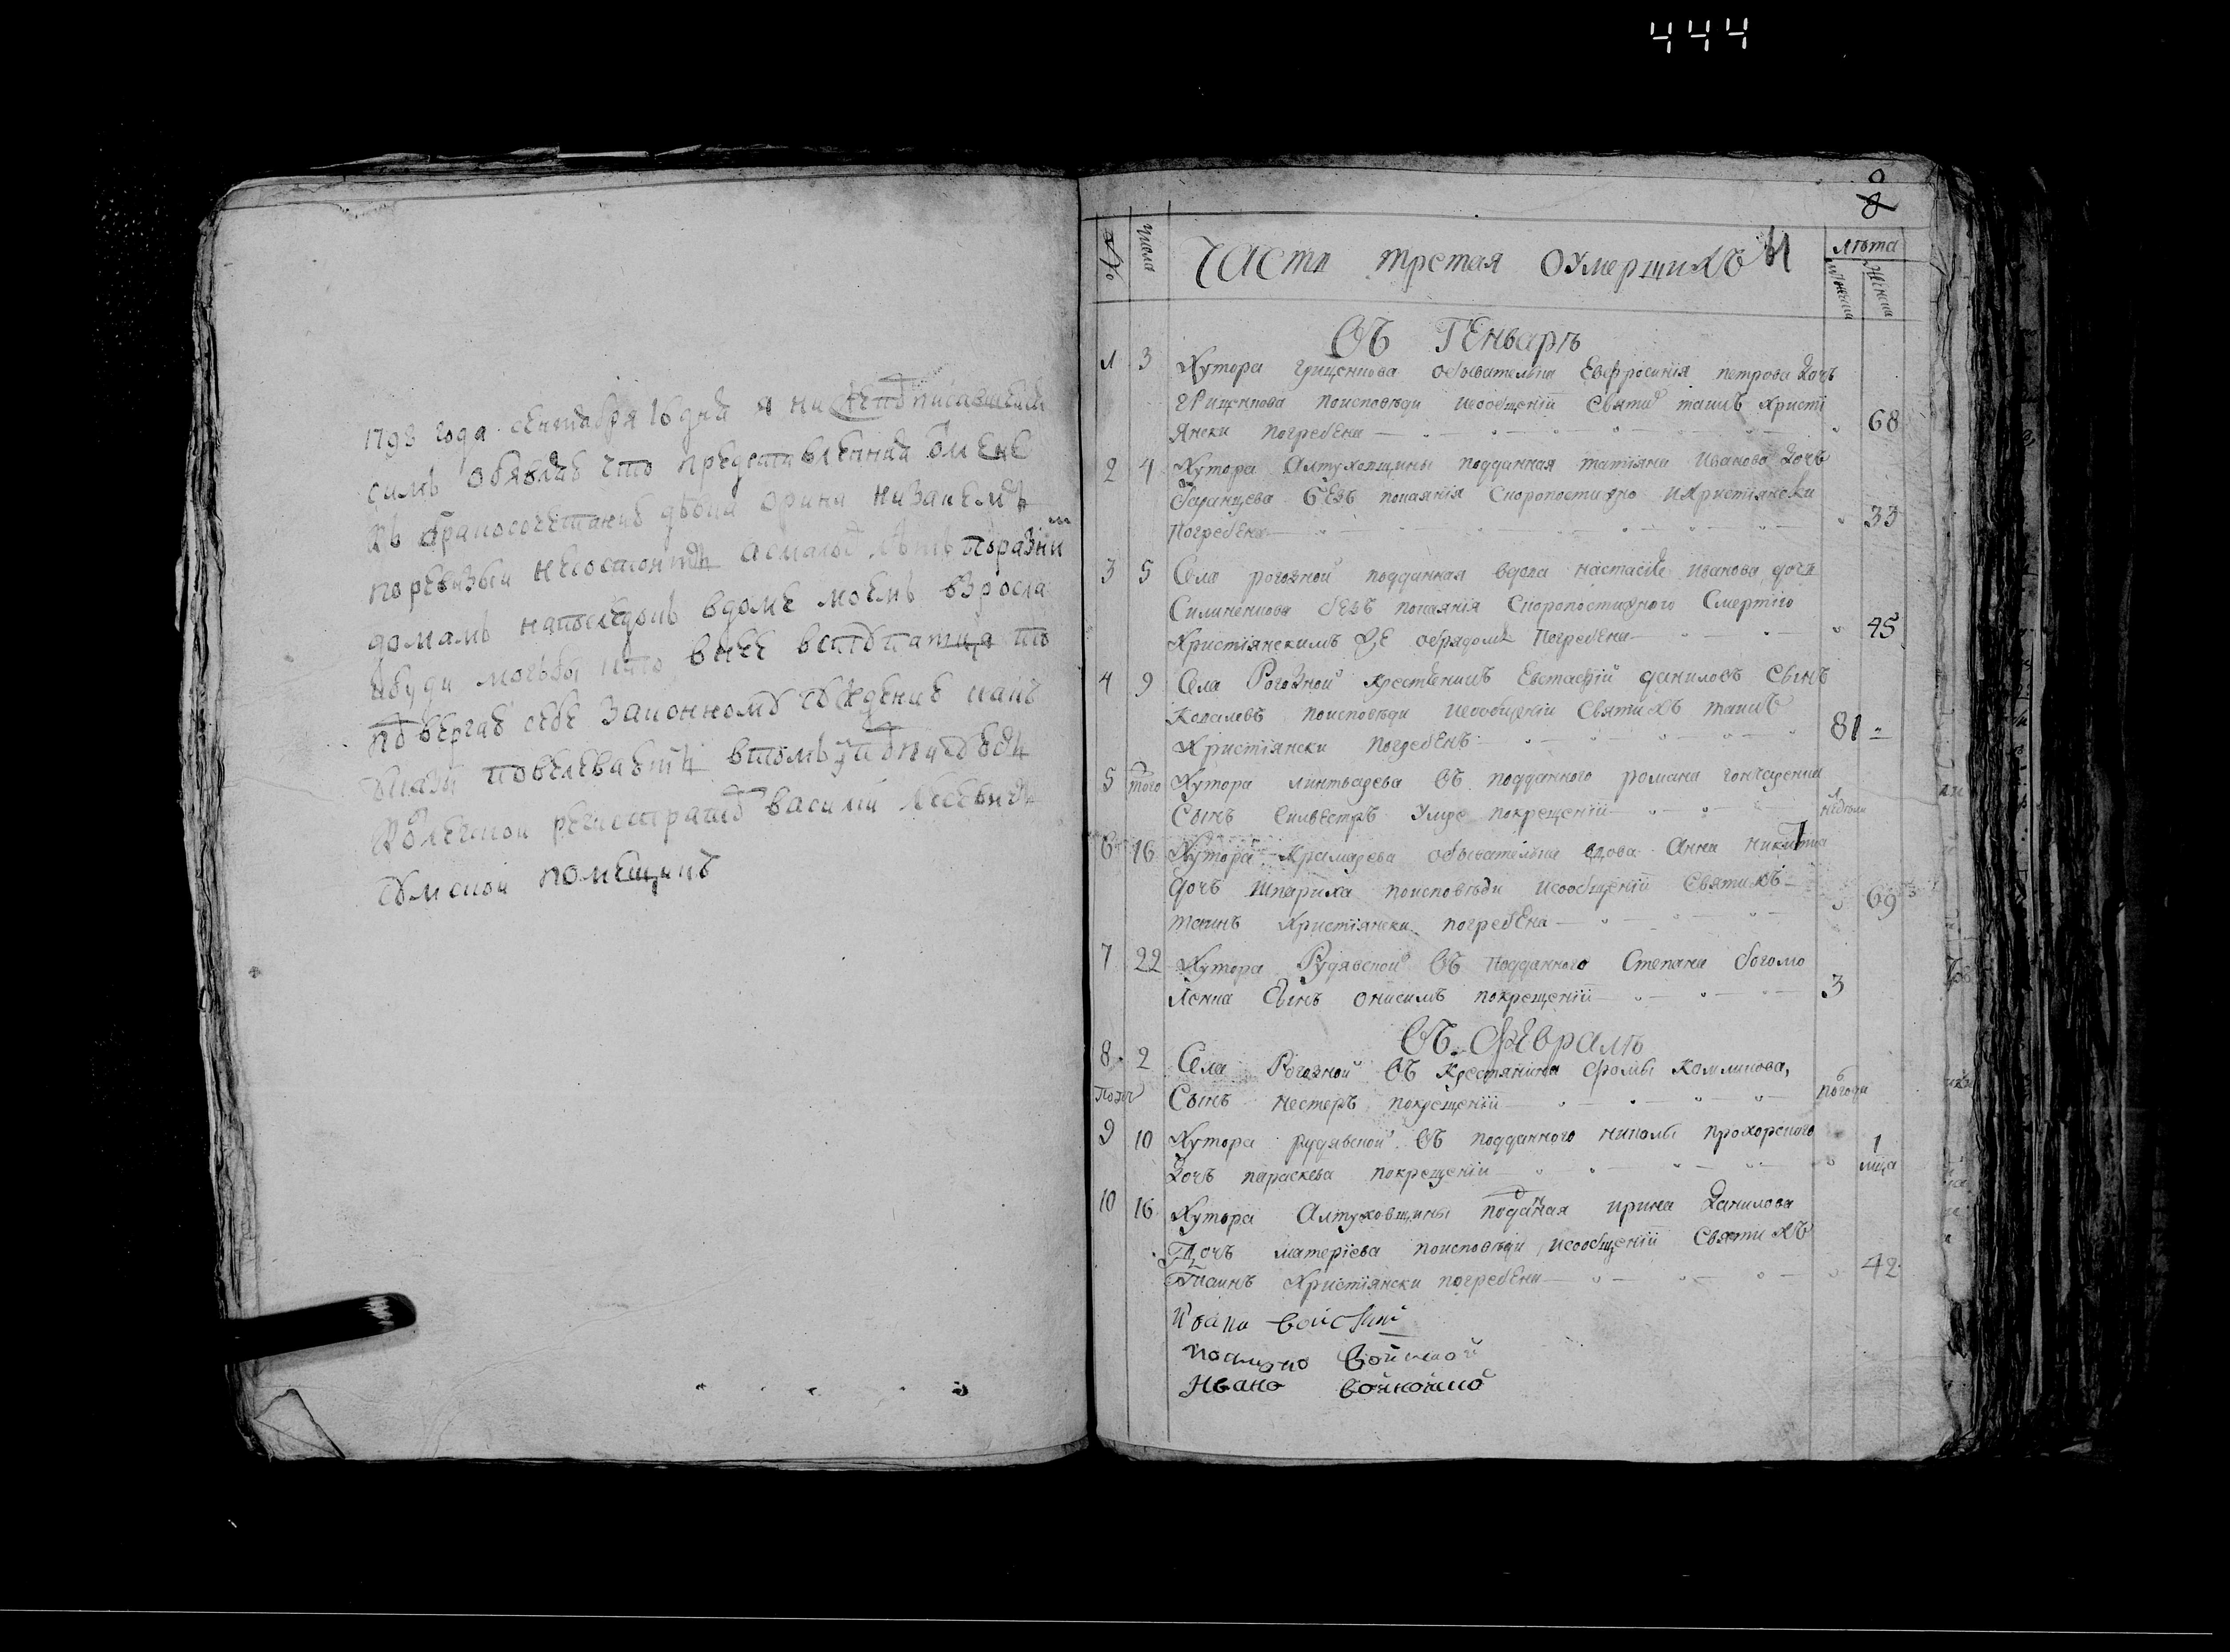 444
1798 года сентября 16 дня я ниже подписавшейся
симъ обявляю что представленная мене
къ бракосочетанию девка орина
поревизыи несостоитъ
домамъ напоследокъ вдоме моемъ взросла
ибуди могъбы кто внее вступатця то
подвергаю себе законному суждению какъ
указы повелеваютъ втомъ и подписуюсь
колежской регистраторъ василий
сумской помещикъ
8
№ числа Часть третая оумершихъ лѣта
мужска женска
Въ Генварѣ
1 3 Хутора Грищенкова обывателка Евфросинія петрова дочъ
грищенкова поисповѣди исообщеніи святы таинъ христі
янски погребена 68
2 4 Хутора Алтуховщины подданная татіяна иванова дочъ
Баранцева безъ покаянія скоропостижно ихристіянски
погребена 33
3 5 Села рогозной подданная вдова настасія иванова дочь
Силиненкова безъ покаянія скоропостижного смертію
христіянскимъ же обрядомъ погребена 45
4 9 Села Рогозной крестянинъ Евстафій даниловъ сынъ
Ковалевъ поисповѣди исообщеніи святихъ таинъ
христіянски погребенъ 81
5 того Хутора линтварева въ подданного романа гончаренка
Сынъ силвестръ умре покрещеніи 1 недѣли
6 16 Хутора Крамарева обывателка вдова Анна никитина
дочъ шпариха поисповѣди исообщеніи святихъ
таинъ христіянски погребена 69
7 22 Хутора Рудявской въ подданного Степана богомо
ленка сынъ онисимъ покрещеніи 3
Въ Февралѣ
8 2 Села Рогозной въ крестянина фомы калминова,
Сынъ нестеръ покрещеніи 6 погоди
9 10 Хутора рудявской въ подданного николы прохорского
дочъ параскева покрещеніи 1 мца
10 16 Хутора Алтуховщины поданая ирина данилова
дочъ матеріева поисповѣди исообщеніи святихъ
таинъ христіянски погребена 42
Ивано